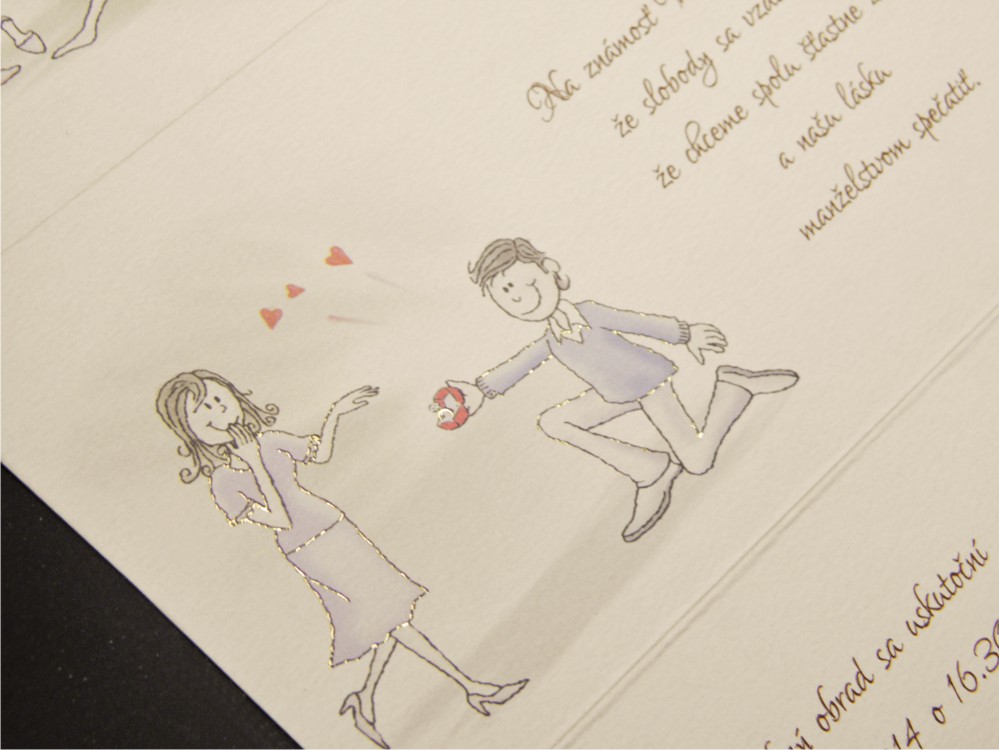 Na známosť
že slobody sa
že chceme spolu šťastne
a našu lásku
manželstvom spečatiť.
obrad sa uskutoční
14 o 16.30